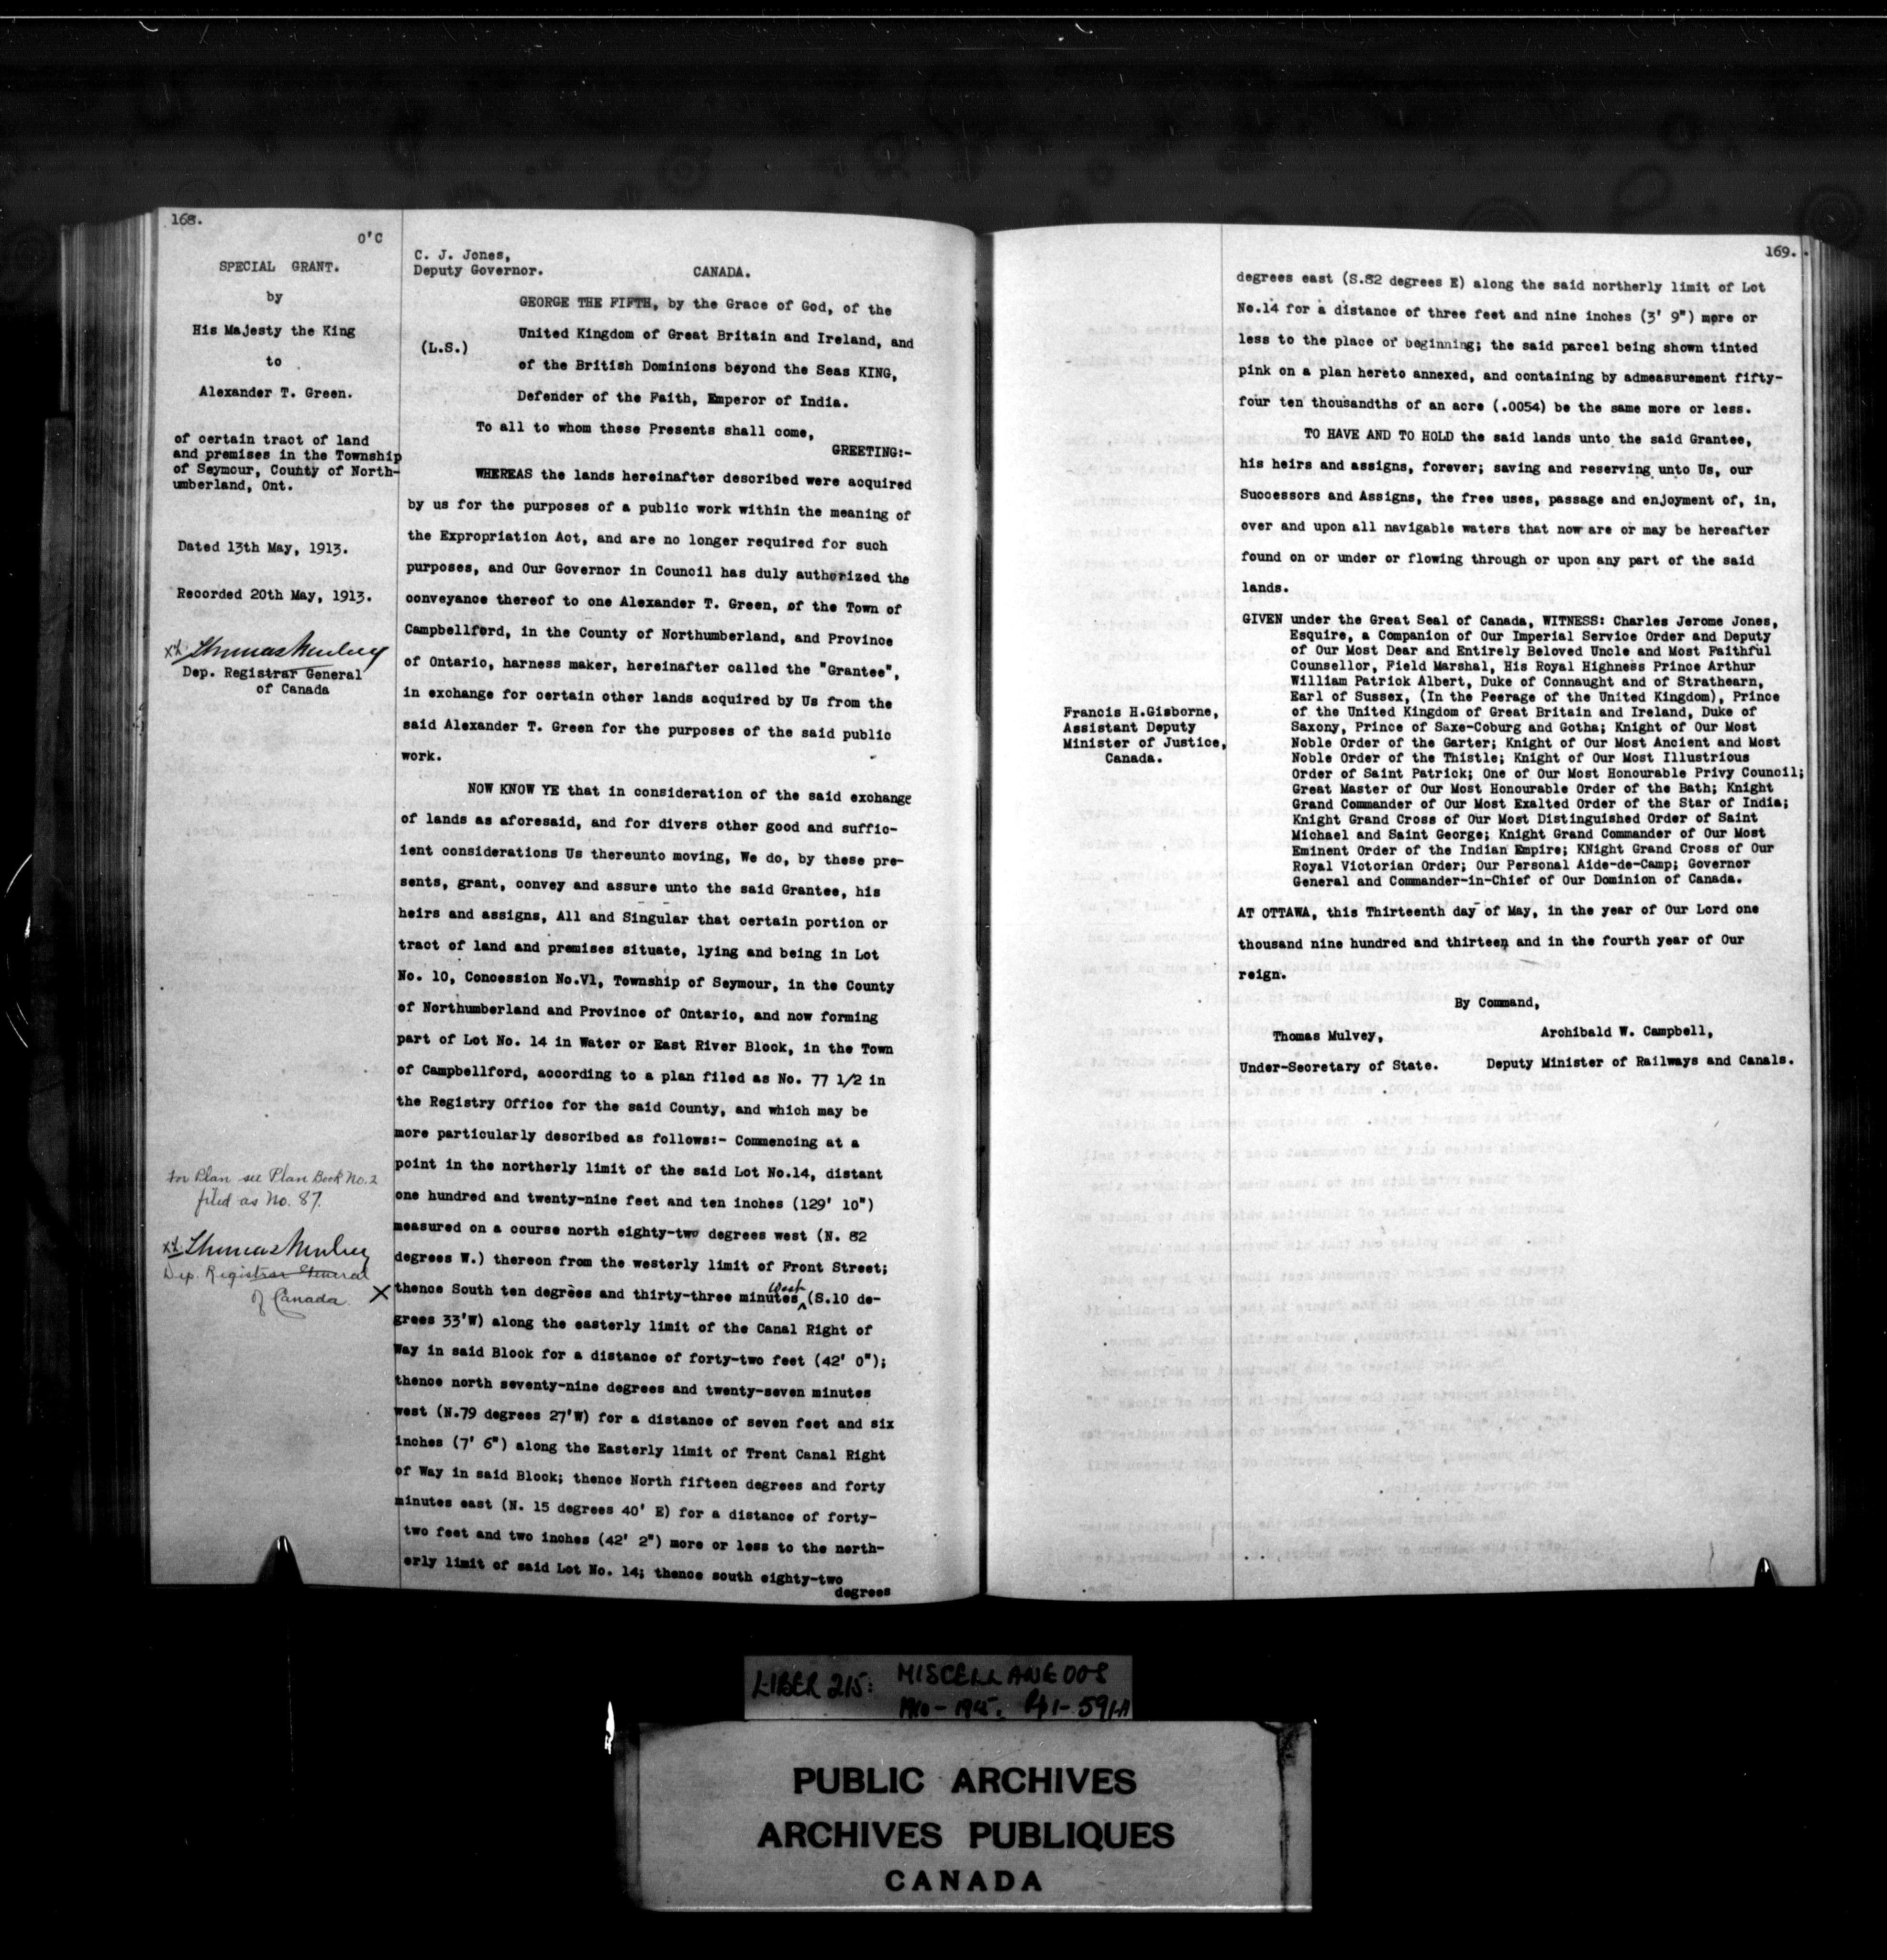 168.
O'C
SPECIAL GRANT.
by
His Majesty the King
to
Alexander T. Green.
of certain tract of land
and premises in the Township
of Seymour, County of North-
umberland, Ont.
Dated 13th May, 1913.
Recorded 20th May, 1913.
Thomas Mulvey
Dep. Registrar General
of Canada
For Plan see Plan Book No. 2
filed as No. 87.
Thomas Mulvey
Dep. Registrar General
of Canada.
X
C. J. Jones,
Deputy Governor.
CANADA.
(L.S.)
GEORGE THE FIFTH, by the Grace of God, of the
United Kingdom of Great Britain and Ireland, and
of the British Dominions beyond the Seas KING,
Defender of the Faith, Emperor of India.
To all to whom these Presents shall come,
GREETING:-
WHEREAS the lands hereinafter described were acquired
by us for the purposes of a public work within the meaning of
the Expropriation Act, and are no longer required for such
purposes, and Our Governor in Council has duly authorized the
conveyance thereof to one Alexander T. Green, of the Town of
Campbellford, in the County of Northumberland, and Province
of Ontario, harness maker, hereinafter called the "Grantee",
in exchange for certain other lands acquired by Us from the
said Alexander T. Green for the purposes of the said public
work.
NOW KNOW YE that in consideration of the said exchange
of lands as aforesaid, and for divers other good and suffic-
ient considerations Us thereunto moving, We do, by these pre-
sents, grant, convey and assure unto the said Grantee, his
heirs and assigns, All and Singular that certain portion or
tract of land and premises situate, lying and being in Lot
No. 10, Concession No.V1, Township of Seymour, in the County
of Northumberland and Province of Ontario, and now forming
part of Lot No. 14 in Water or East River Block, in the Town
of Campbellford, according to a plan filed as No. 77 1/2 in
the Registry Office for the said County, and which may be
more particularly described as follows:- Commencing at a
point in the northerly limit of the said Lot No.14, distant
one hundred and twenty-nine feet and ten inches (129' 10")
measured on a course north eighty-two degrees west (N. 82
degrees W.) thereon from the westerly limit of Front Street;
thence South ten degrees and thirty-three minutes West (S.10 de-
grees 33'W) along the easterly limit of the Canal Right of
Way in said Block for a distance of forty-two feet (42' 0");
thence north seventy-nine degrees and twenty-seven minutes
west (N.79 degrees 27'W) for a distance of seven feet and six
inches (7' 6") along the Easterly limit of Trent Canal Right
of Way in said Block; thence North fifteen degrees and forty
minutes east (N. 15 degrees 40' E) for a distance of forty-
two feet and two inches (42' 2") more or less to the north-
erly limit of said Lot No. 14; thence south eighty-two
degrees
169.
degrees east (S.82 degrees E) along the said northerly limit of Lot
No.14 for a distance of three feet and nine inches (3' 9") more or
less to the place of beginning; the said parcel being shown tinted
pink on a plan hereto annexed, and containing by admeasurement fifty-
four ten thousandths of an acre (.0054) be the same more or less.
TO HAVE AND TO HOLD the said lands unto the said Grantee,
his heirs and assigns, forever; saving and reserving unto Us, our
Successors and Assigns, the free uses, passage and enjoyment of, in,
over and upon all navigable waters that now are or may be hereafter
found on or under or flowing through or upon any part of the said
lands.
GIVEN under the Great Seal of Canada, WITNESS: Charles Jerome Jones,
Esquire, a Companion of Our Imperial Service Order and Deputy
of Our Most Dear and Entirely Beloved Uncle and Most Faithful
Counsellor, Field Marshal, His Royal Highness Prince Arthur
William Patrick Albert, Duke of Connaught and of Strathearn,
Earl of Sussex, (In the Peerage of the United Kingdom), Prince
of the United Kingdom of Great Britain and Ireland, Duke of
Saxony, Prince of Saxe-Coburg and Gotha; Knight of Our Most
Noble Order of the Garter; Knight of Our Most Ancient and Most
Noble Order of the Thistle; Knight of Our Most Illustrious
Order of Saint Patrick; One of Our Most Honourable Privy Council;
Great Master of Our Most Honourable Order of the Bath; Knight
Grand Commander of Our Most Exalted Order of the Star of India;
Knight Grand Cross of Our Most Distinguished Order of Saint
Michael and Saint George; Knight Grand Commander of Our Most
Eminent Order of the Indian Empire; KNight Grand Cross of Our
Royal Victorian Order; Our Personal Aide-de-Camp; Governor
General and Commander-in-Chief of Our Dominion of Canada.
Francis H.Gisborne,
Assistant Deputy
Minister of Justice,
Canada.
AT OTTAWA, this Thirteenth day of May, in the year of Our Lord one
thousand nine hundred and thirteen and in the fourth year of Our
reign.
By Command,
Thomas Mulvey,
Under-Secretary of State.
Archibald W. Campbell,
Deputy Minister of Railways and Canals.
LIBER 215: MISCELLANEOUS
1910-1915. Pp 1-591A
PUBLIC ARCHIVES
ARCHIVES PUBLIQUES
CANADA